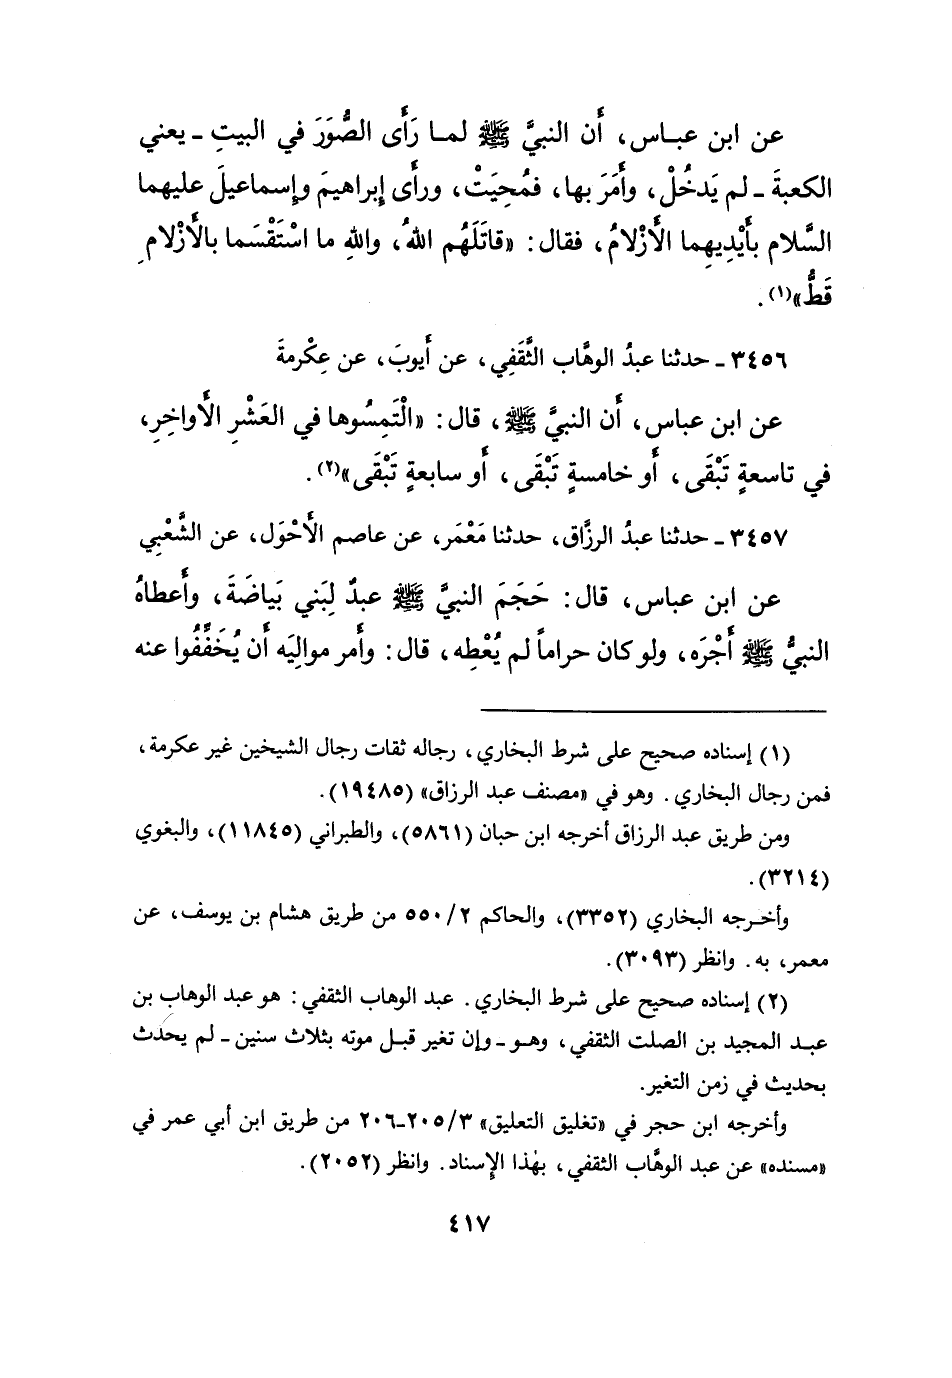 عن ابن عباس، أَن النبيَّ ﷺ لما رَأَى الصُّوَرَ في البيتِ ـ يعني
الكعبةَ ـ لم يَدخُلْ، وأَمَرَ بها، فمُحِيَتْ، ورأَى إبراهيمَ وإسماعيلَ عليهما
السَّلام بأَيْدِيهِما الأَزْلامُ، فقال: «قاتَلَهُم اللهُ، واللهِ ما اسْتَقْسَما بالأَزْلامِ
قَطُّ»(١).
٣٤٥٦ ـ حدثنا عبدُ الوهَّاب الثَّقَفِي، عن أَيوبَ، عن عِكْرمةَ
عن ابن عباس، أَن النبيَّ ﷺ، قال: «الْتَمِسُوها في العَشْرِ الأَواخِرِ،
في تاسعةٍ تَبْقَى، أَو خامسةٍ تَبْقَى، أَو سابعةٍ تَبْقَى»(٢).
٣٤٥٧ ـ حدثنا عبدُ الرزَّاق، حدثنا مَعْمَر، عن عاصم الأَحْوَل، عن الشَّعْبِي
عن ابن عباس، قال: حَجَمَ النبيَّ ﷺ عبدٌ لِبَني بَياضَةَ، وأَعطاهُ
النبيُّ ﷺ أَجْرَه، ولو كان حراماً لم يُعْطِه، قال: وأَمر مواليَه أَن يُخَفِّفُوا عنه
(١) إسناده صحيح على شرط البخاري، رجاله ثقات رجال الشيخين غير عكرمة،
فمن رجال البخاري. وهو في «مصنف عبد الرزاق» (١٩٤٨٥).
ومن طريق عبد الرزاق أخرجه ابن حبان (٥٨٦١)، والطبراني (١١٨٤٥)، والبغوي
(٣٢١٤).
وأخرجه البخاري (٣٣٥٢)، والحاكم ٥٥٠/٢ من طريق هشام بن يوسف، عن
معمر، به. وانظر (٣٠٩٣).
(٢) إسناده صحيح على شرط البخاري. عبد الوهاب الثقفي: هو عبد الوهاب بن
عبد المجيد بن الصلت الثقفي، وهو ـ وإن تغير قبل موته بثلاث سنين ـ لم يحدث
بحديث في زمن التغير.
وأخرجه ابن حجر في «تغليق التعليق» ٢٠٥/٣ـ٢٠٦ من طريق ابن أبي عمر في
«مسنده» عن عبد الوهَّاب الثقفي، بهٰذا الإِسناد. وانظر (٢٠٥٢).
٤١٧